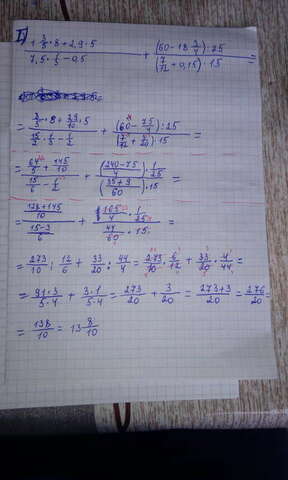 I) (1 3/5 · 8 + 2,9 · 5)/(7,5 · 1/3 - 0,5) + ((60 - 18 3/4) : 25)/((7/12 + 0,15) · 15) =
= (8/5 · 8 + 29/10 · 5)/(15/2 · 1/3 - 1/2) + ((60 - 75/4) : 25)/((7/12 + 3/20) · 15) =
= (64/5 + 145/10)/(15/6 - 1/2) + ((240-75)/4 · 1/25)/((35+9)/60 · 15) =
= ((128+145)/10)/((15-3)/6) + (165/4 · 1/25)/(44/60 · 15) =
= 273/10 : 12/6 + 33/20 : 44/4 = 273/10 · 6/12 + 33/20 · 4/44 =
= (91·3)/(5·4) + (3·1)/(5·4) = 273/20 + 3/20 = (273+3)/20 = 276/20 =
= 138/10 = 13 8/10